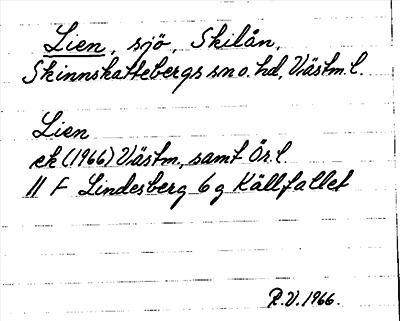 Lien, sjö, Skilån,
Skinnskattebergs sn o. hd, Västm.l.
Lien
ek (1966) Västm., samt Ör.l.
11 F Lindesberg 6 g Källfallet
R.V. 1966.